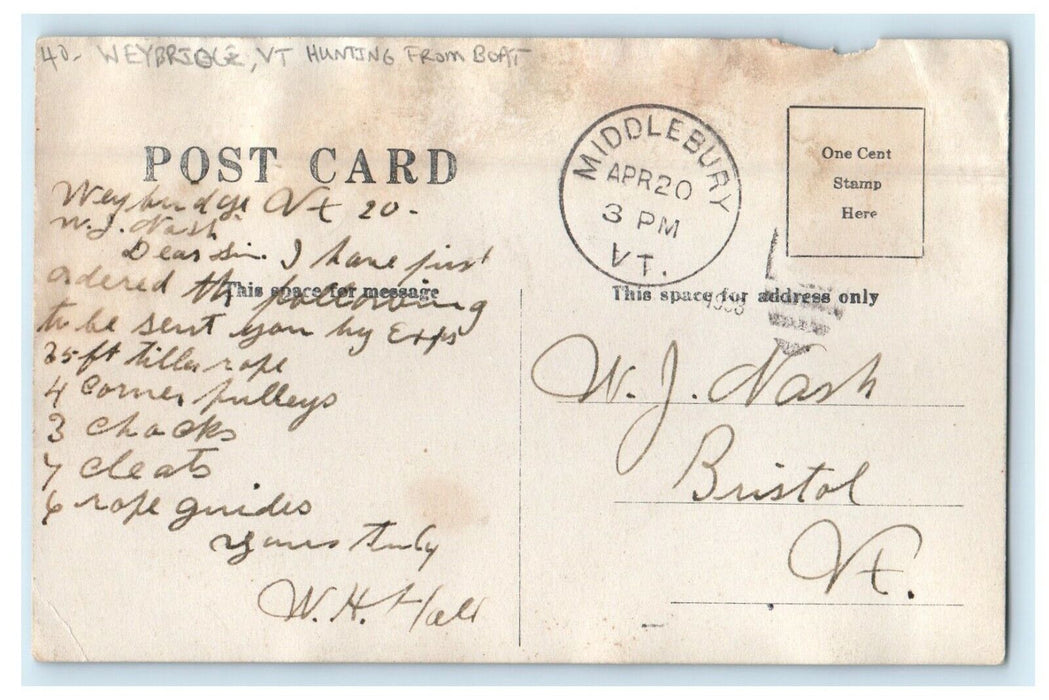 40- WEYBRIDGE, VT HUNTING FROM BOAT
POST CARD
Weybridge Vt 20-
W. J. Nash
Dear Sir. I have just
ordered the following
to be sent you by Exps
25 ft tiller rope
4 corner pulleys
3 chocks
7 cleats
6 rope guides
Yours truly
W. H. Hall
This space for message
MIDDLEBURY
APR 20
3 PM
VT.
One Cent
Stamp
Here
This space for address only
W. J. Nash
Bristol
Vt.